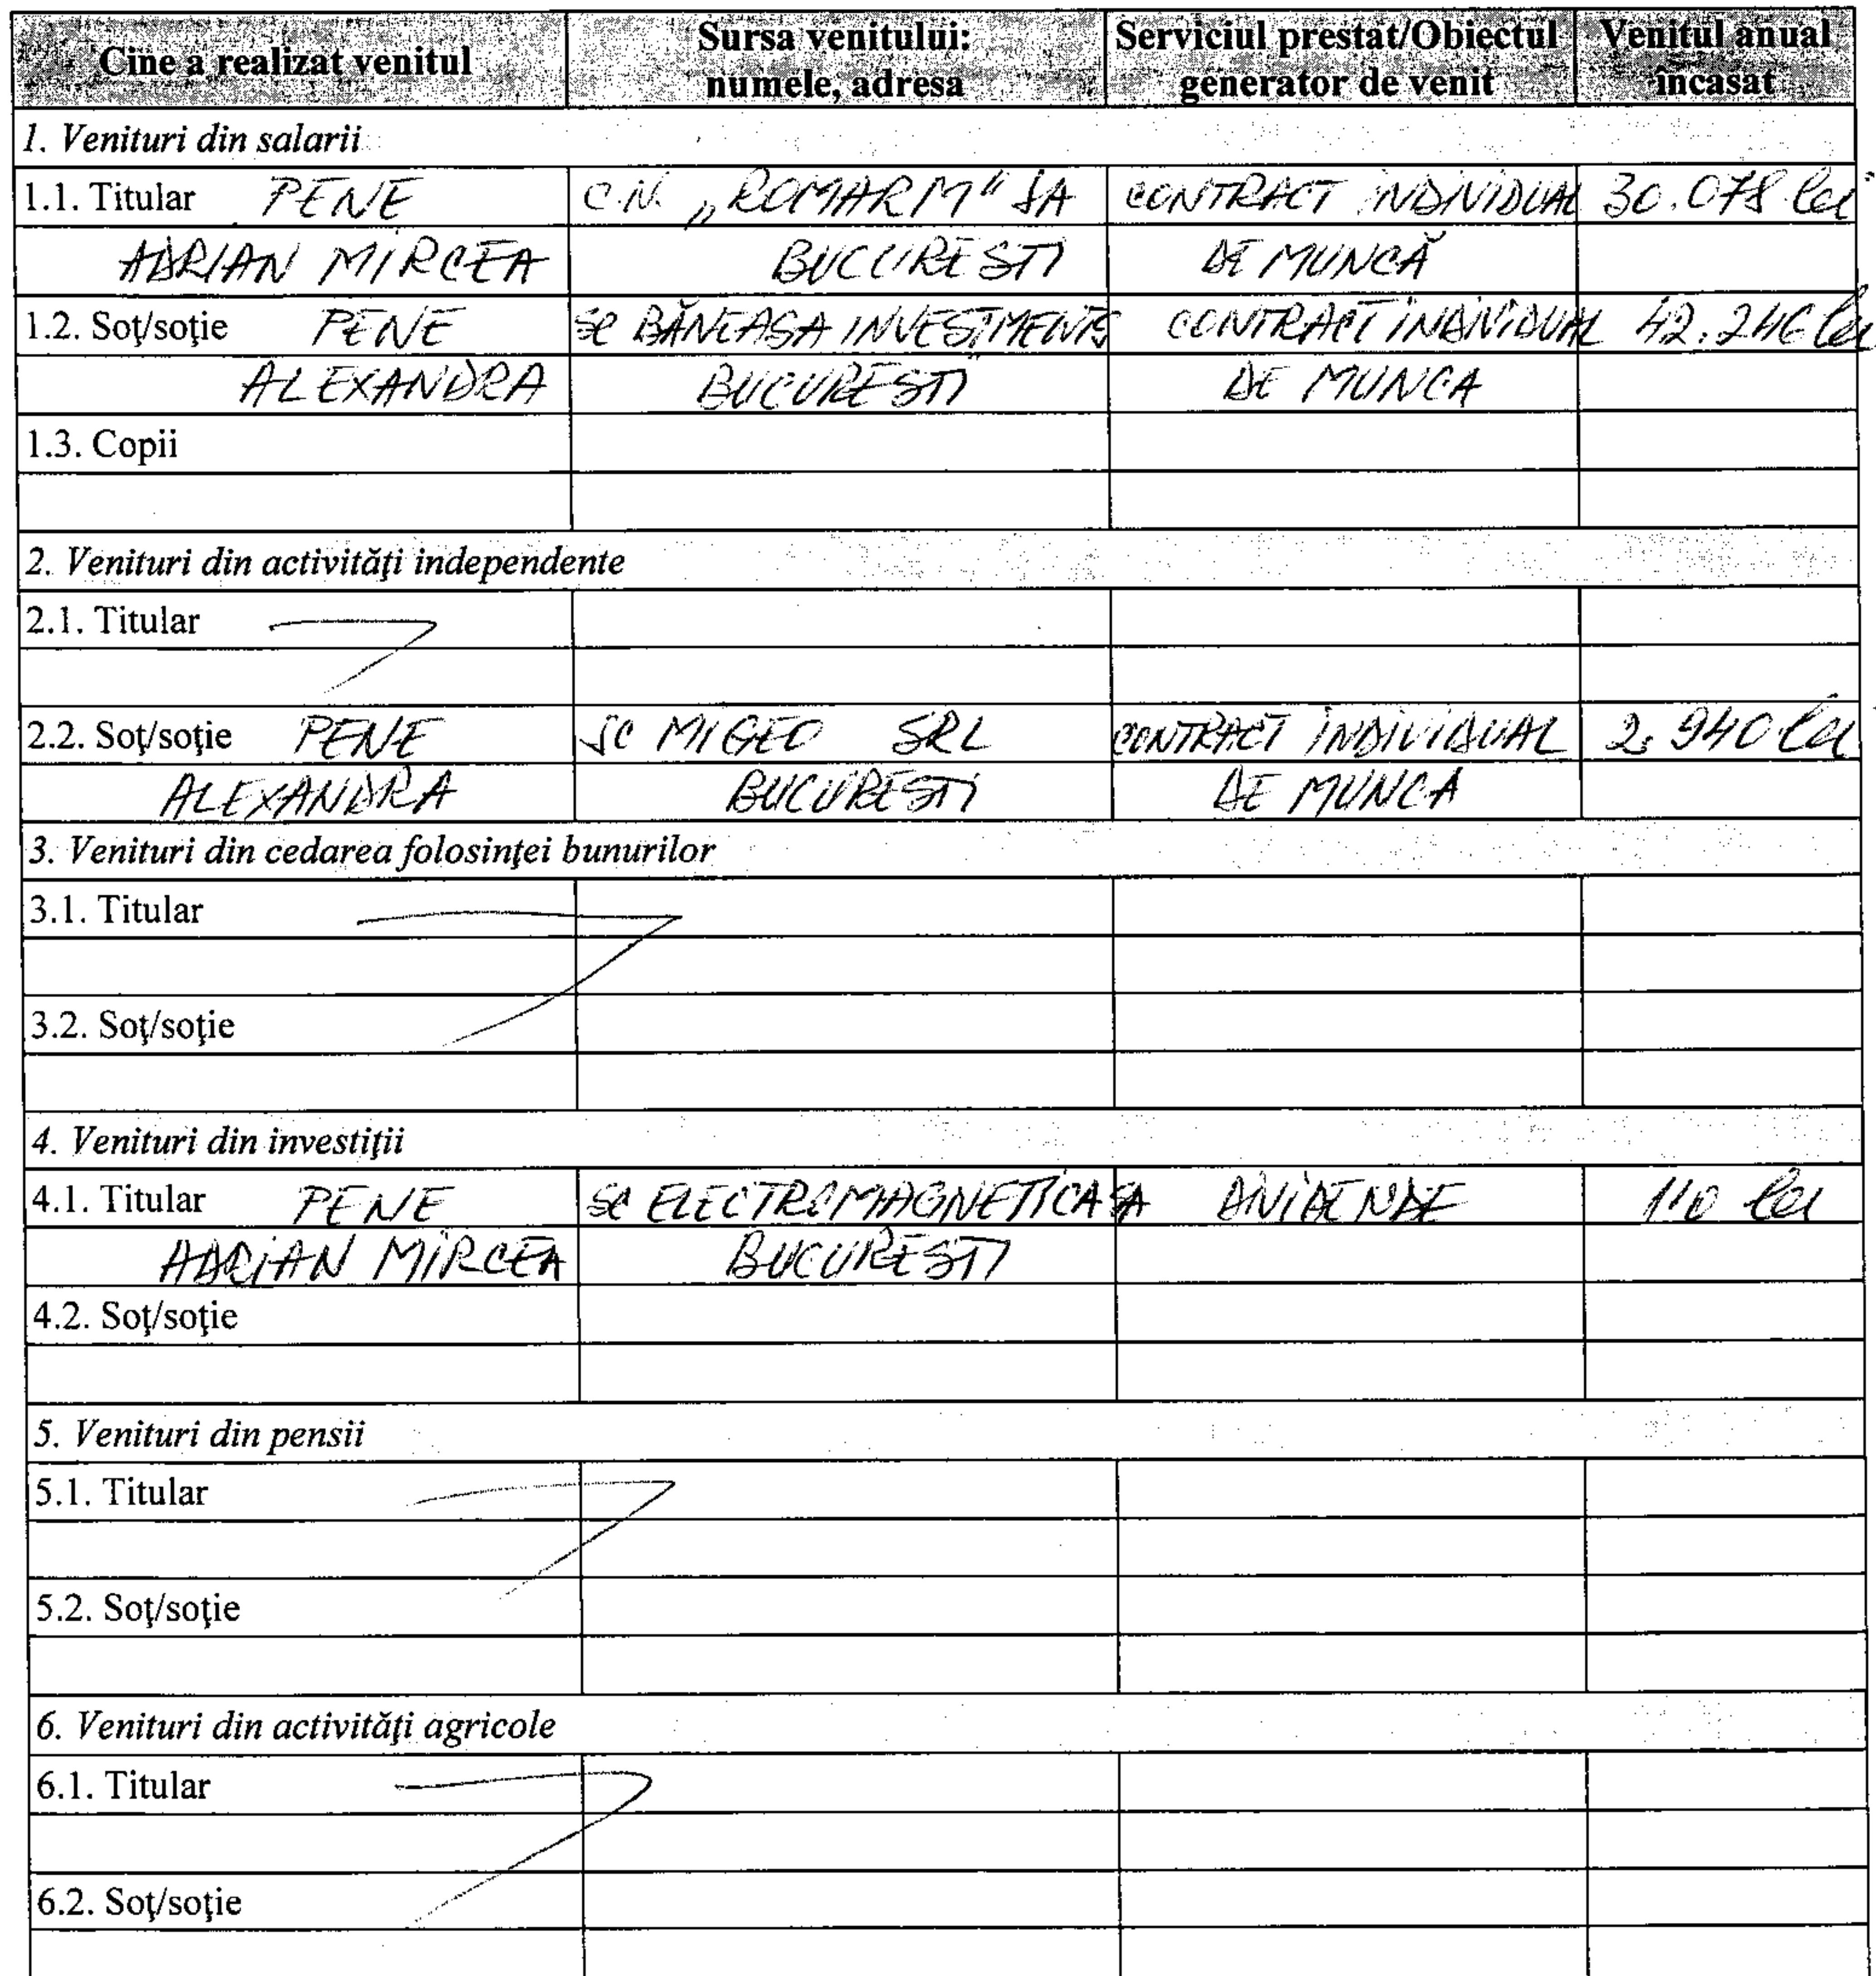 Cine a realizat venitul | Sursa venitului: numele, adresa | Serviciul prestat/Obiectul generator de venit | Venitul anual încasat
1. Venituri din salarii
1.1. Titular PENE | C.N. „ROMARM" SA | CONTRACT INDIVIDUAL | 30.078 lei
ADRIAN MIRCEA | BUCURESTI | DE MUNCĂ
1.2. Soţ/soţie PENE | SC BĂNEASA INVESTMENTS | CONTRACT INDIVIDUAL | 42.246 lei
ALEXANDRA | BUCURESTI | DE MUNCA
1.3. Copii
2. Venituri din activităţi independente
2.1. Titular
2.2. Soţ/soţie PENE | SC MIGEO SRL | CONTRACT INDIVIDUAL | 2.940 lei
ALEXANDRA | BUCURESTI | DE MUNCA
3. Venituri din cedarea folosinţei bunurilor
3.1. Titular
3.2. Soţ/soţie
4. Venituri din investiţii
4.1. Titular PENE | SC ELECTROMAGNETICA SA | DIVIDENDE | 110 lei
ADRIAN MIRCEA | BUCURESTI
4.2. Soţ/soţie
5. Venituri din pensii
5.1. Titular
5.2. Soţ/soţie
6. Venituri din activităţi agricole
6.1. Titular
6.2. Soţ/soţie